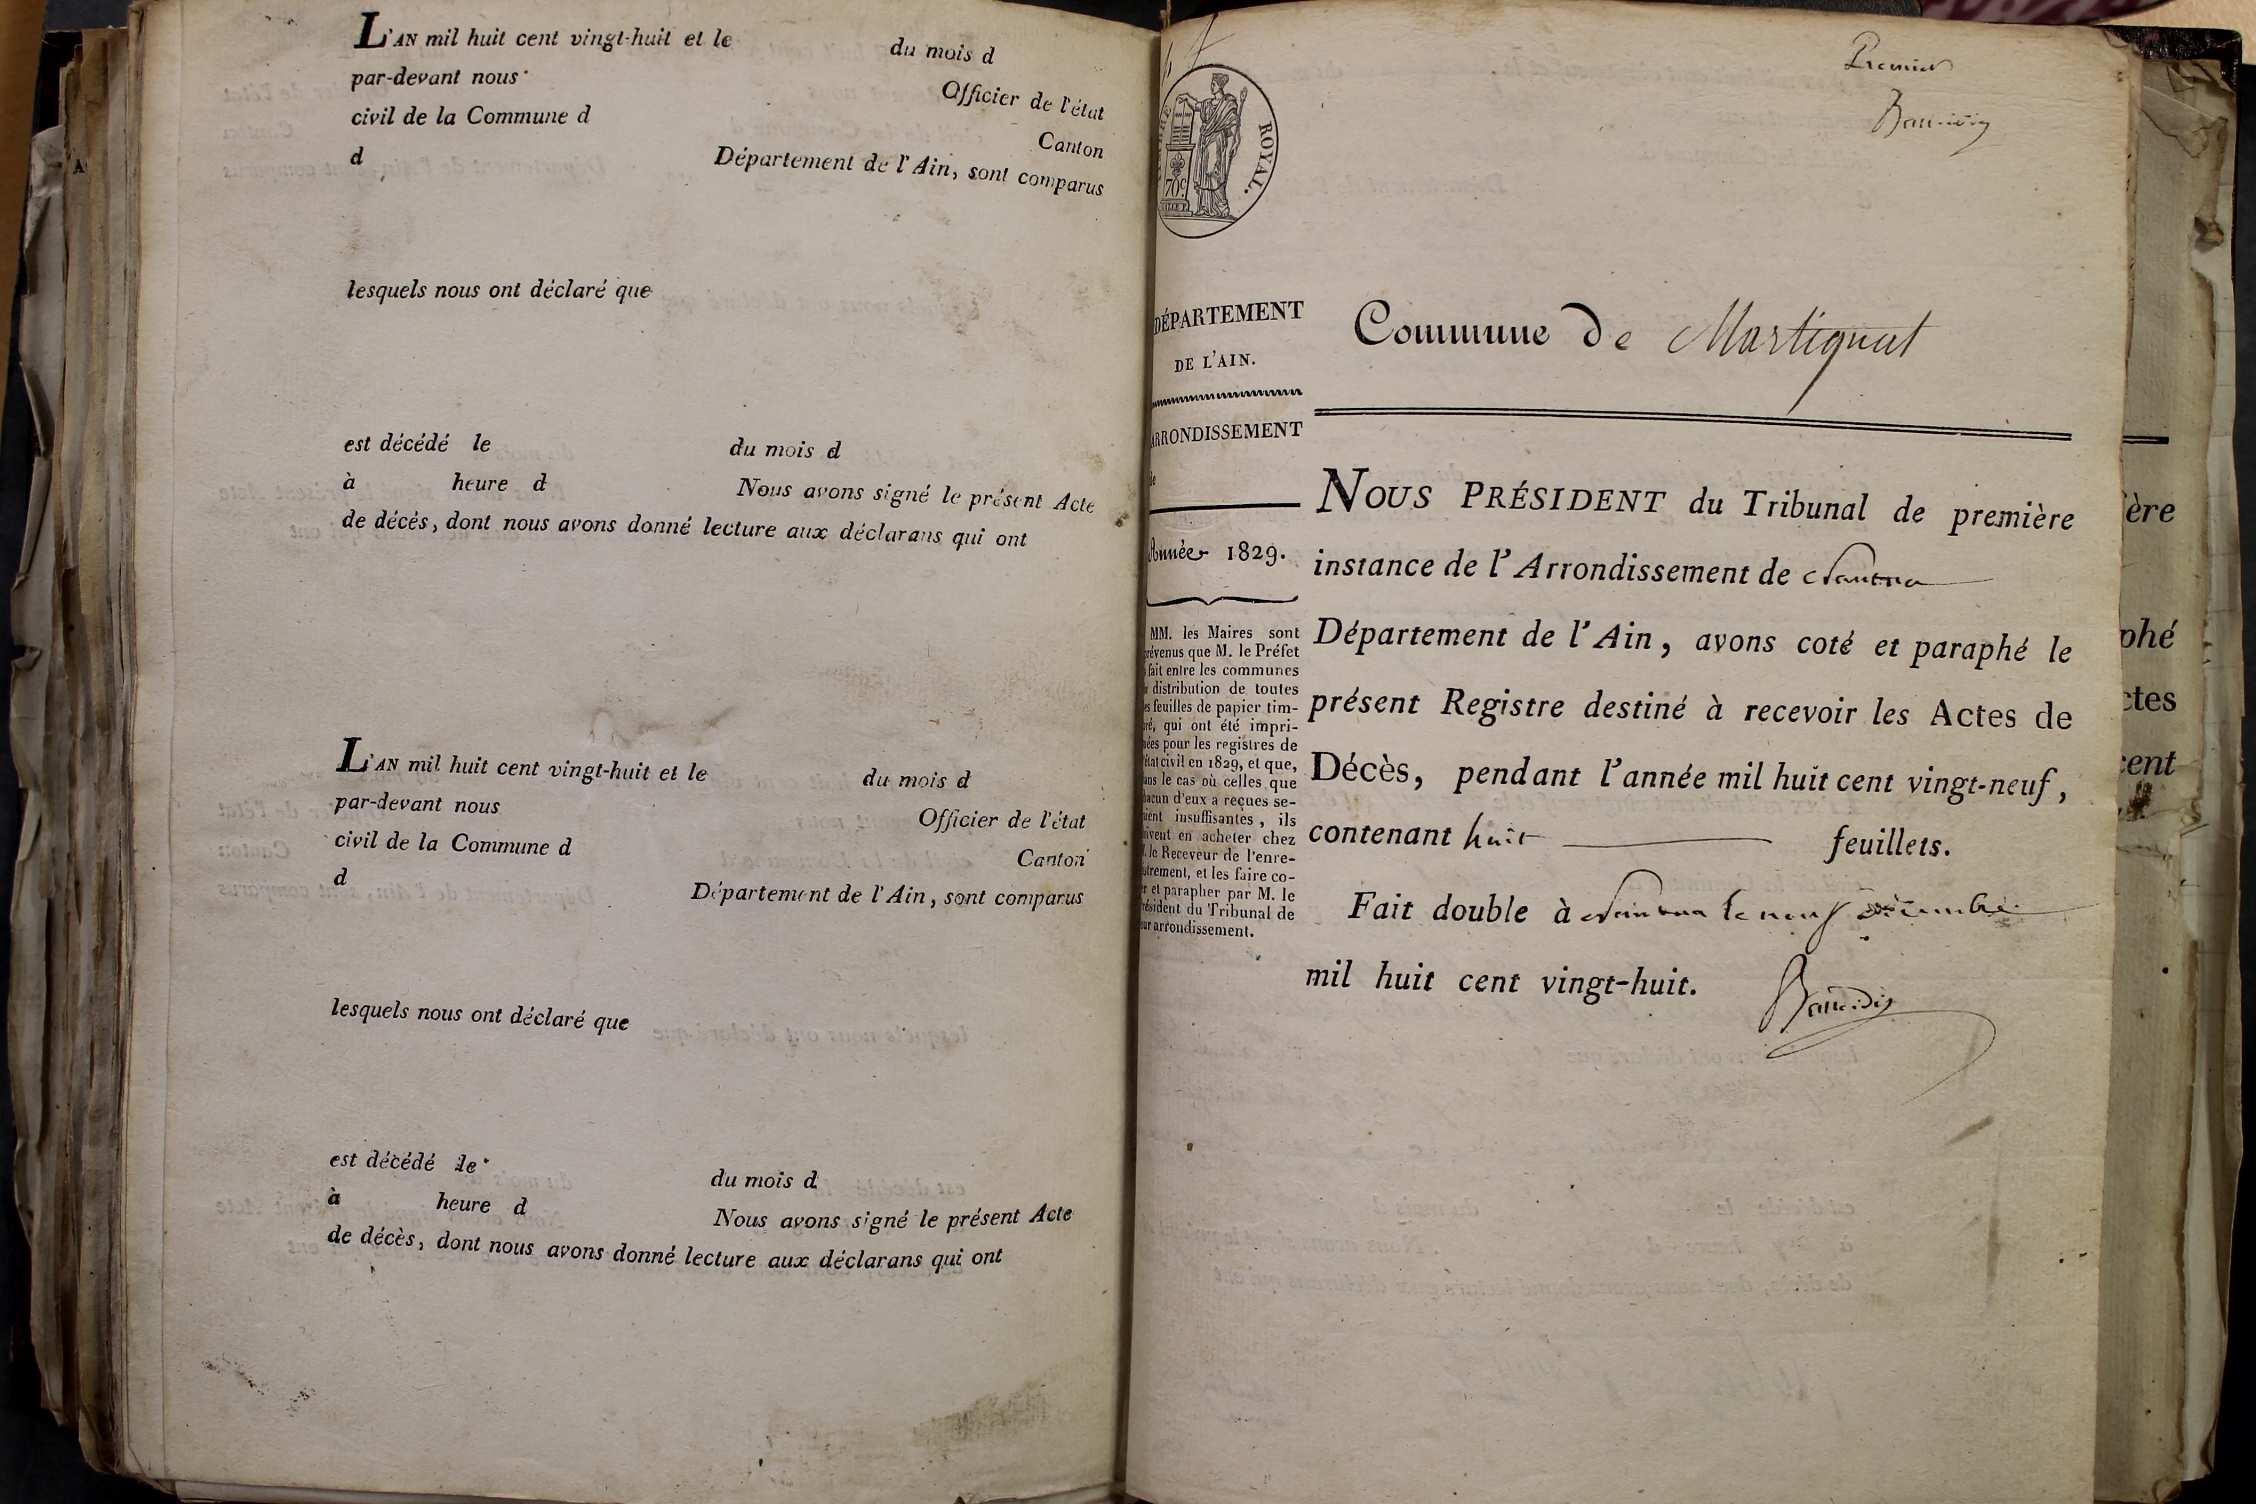 L'AN mil huit cent vingt-huit et le du mois d
par-devant nous Officier de l'état
civil de la Commune d Canton
d Département de l'Ain, sont comparus
lesquels nous ont déclaré que
est décédé le du mois d
à heure d Nous avons signé le présent Acte
de décès, dont nous avons donné lecture aux déclarans qui ont
L'AN mil huit cent vingt-huit et le du mois d
par-devant nous Officier de l'état
civil de la Commune d Canton
d Département de l'Ain, sont comparus
lesquels nous ont déclaré que
est décédé le du mois d
à heure d Nous avons signé le présent Acte
de décès, dont nous avons donné lecture aux déclarans qui ont
Premier
ROYAL.
70c
DÉPARTEMENT
DE L'AIN.
ARRONDISSEMENT
de
Année 1829.
MM. les Maires sont
prévenus que M. le Préfet
fait entre les communes
distribution de toutes
es feuilles de papier tim-
bré, qui ont été impri-
mées pour les registres de
l'état civil en 1829, et que,
dans le cas où celles que
chacun d'eux a reçues se-
raient insuffisantes, ils
doivent en acheter chez
M. le Receveur de l'enre-
gistrement, et les faire co-
ter et parapher par M. le
Président du Tribunal de
leur arrondissement.
Commune de Martignat
NOUS PRÉSIDENT du Tribunal de première
instance de l'Arrondissement de Nantua
Département de l'Ain, avons coté et paraphé le
présent Registre destiné à recevoir les Actes de
Décès, pendant l'année mil huit cent vingt-neuf,
contenant huit feuillets.
Fait double à Nantua le neuf décembre
mil huit cent vingt-huit.
ère
phé
ctes
cent